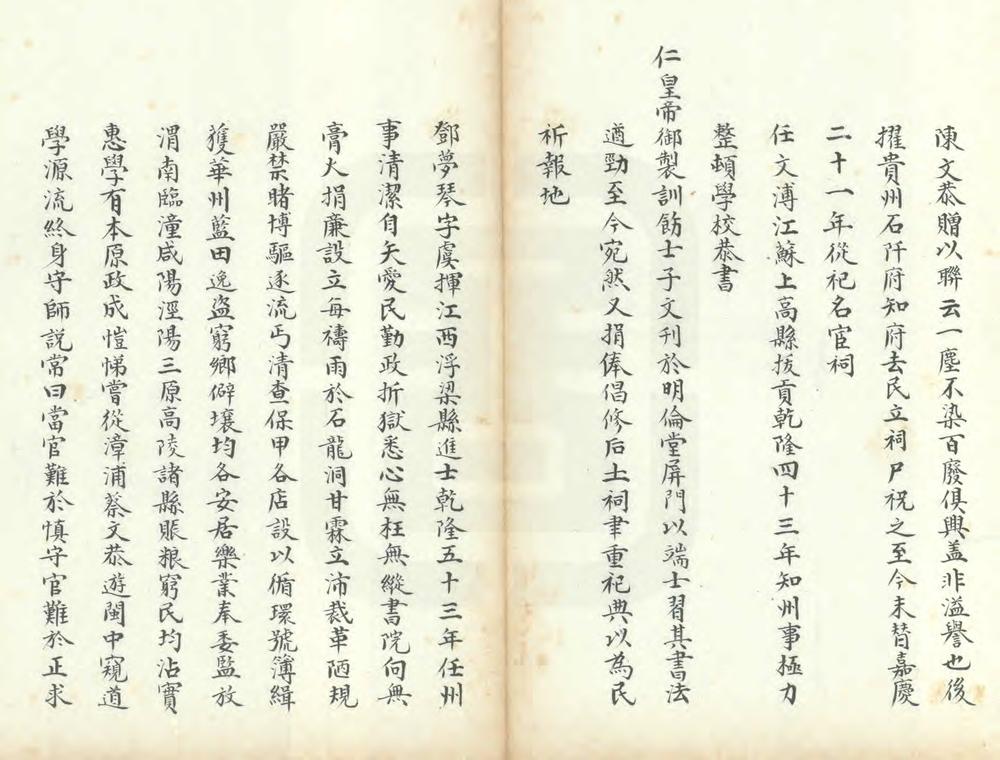 陳文恭贈以聯云一塵不染百廢俱興蓋非溢譽也後
擢貴州石阡府知府去民立祠尸祝之至今未替嘉慶
二十一年從祀名宦祠
任文溥江蘇上高縣拔貢乾隆四十三年知州事極力
整頓學校恭書
仁皇帝御製訓飭士子文刊於明倫堂屏門以端士習其書法
遒勁至今宛然又捐俸倡修后土祠聿重祀典以為民
祈報地
鄧夢琴字虞揮江西浮梁縣進士乾隆五十三年任州
事清潔自矢愛民勤政折獄悉心無枉無縱書院向無
膏火捐廉設立每禱雨於石龍洞甘霖立沛裁革陋規
嚴禁賭博驅逐流丐清查保甲各店設以循環號簿緝
獲華州藍田逸盜窮鄉僻壤均各安居樂業奉委監放
渭南臨潼咸陽涇陽三原高陵諸縣賬粮窮民均沾實
惠學有本原政成愷悌嘗從漳浦蔡文恭遊閩中窺道
學源流終身守師說常曰當官難於慎守官難於正求